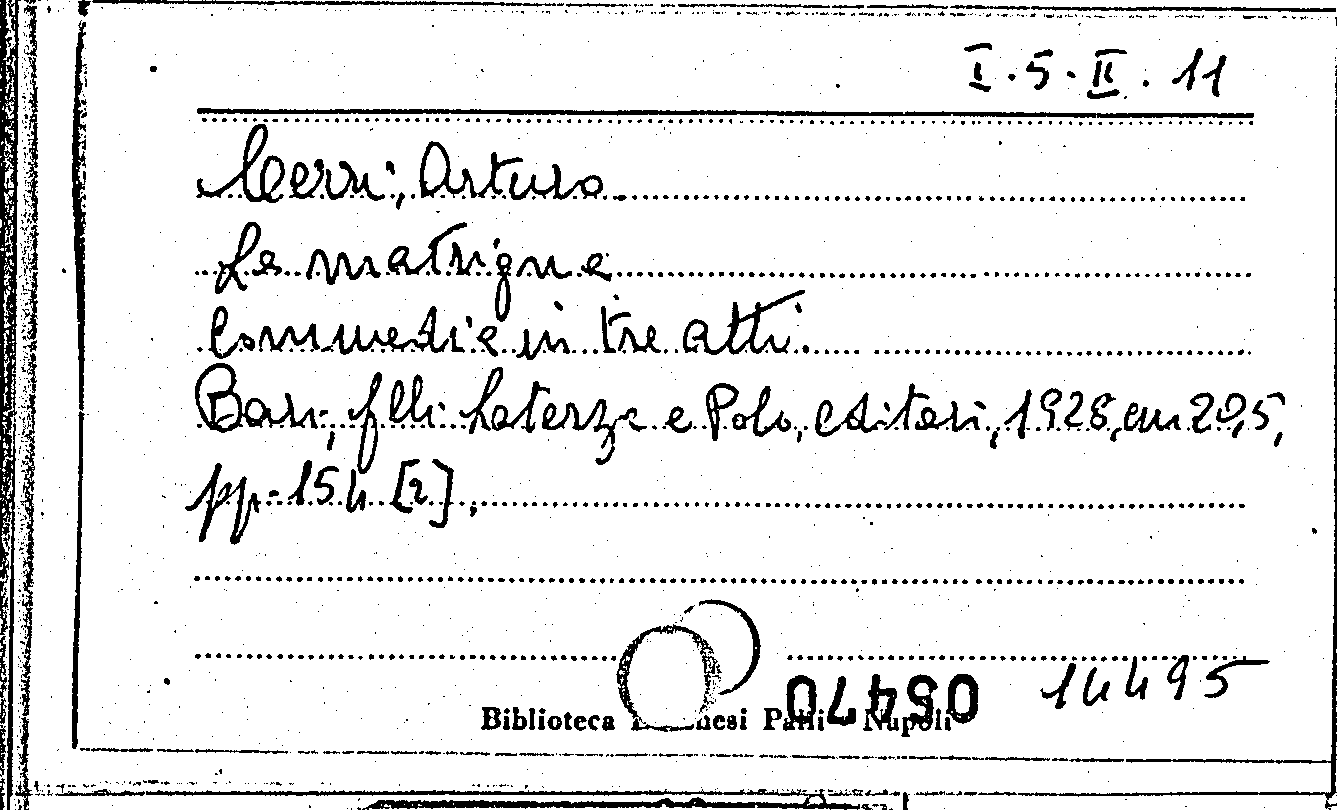 I.5.II.11
Cerri, Arturo.
La matrigna
Commedia in tre atti.
Bari, f.lli Laterza e Polo, editori, 1928, cm 20,5,
pp. 154 [2].
14495
Biblioteca Palli Napoli